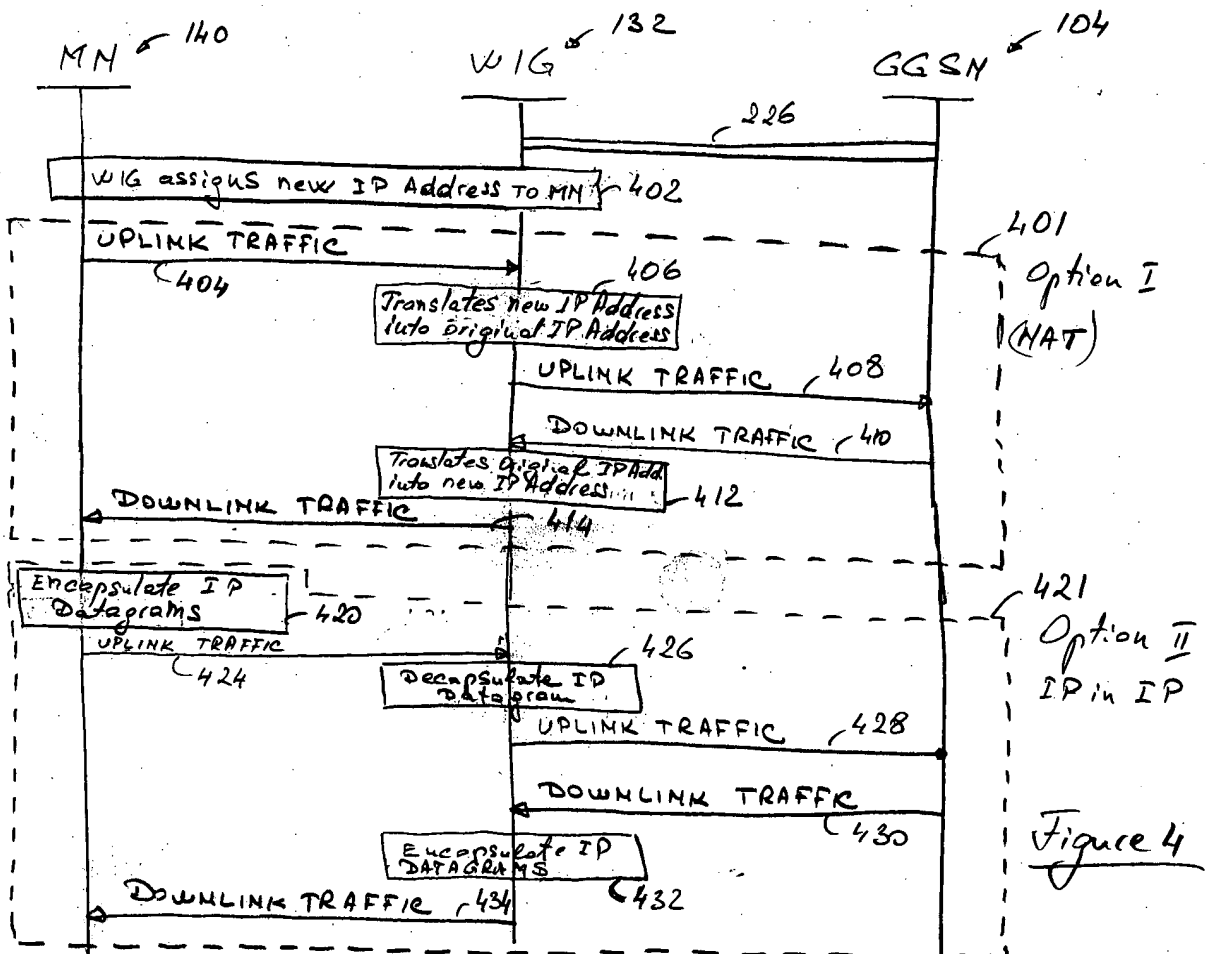 MN 140
WIG 132
GGSN 104
226
WIG assigns new IP Address TO MN 402
401
Option I
(NAT)
UPLINK TRAFFIC
404
406
Translates new IP Address
into original IP Address
UPLINK TRAFFIC 408
DOWNLINK TRAFFIC 410
Translates Original IP Add.
into new IP Address.....
412
DOWNLINK TRAFFIC
414
Encapsulate IP
Datagrams
420
421
Option II
IP in IP
UPLINK TRAFFIC
424
426
Decapsulate IP
Datagram
UPLINK TRAFFIC 428
DOWNLINK TRAFFIC
430
Encapsulate IP
DATAGRAMS
432
DOWNLINK TRAFFIC 434
Figure 4